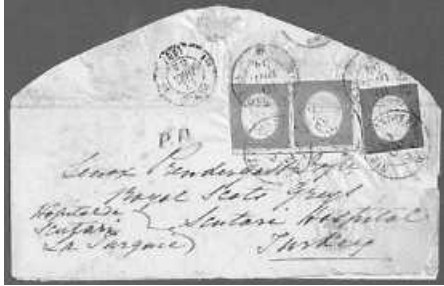 P.P.
Lenox Prendergast Esqre
Royal Scots Greys
Scutari Hospital
Turkey
Hôpital de
Scutari
La Turquie